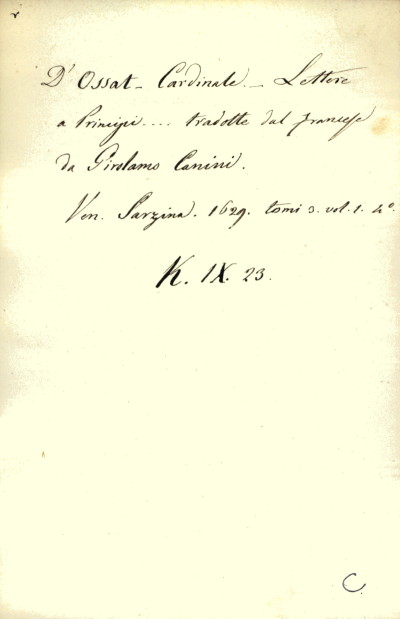 D' Ossat - Cardinale. - Lettere
a Principi .... tradotte dal francese
da Girolamo Canini.
Ven. Sarzina. 1629. tomi 3. vol. 1. 4º.
K. IX. 23.
C.